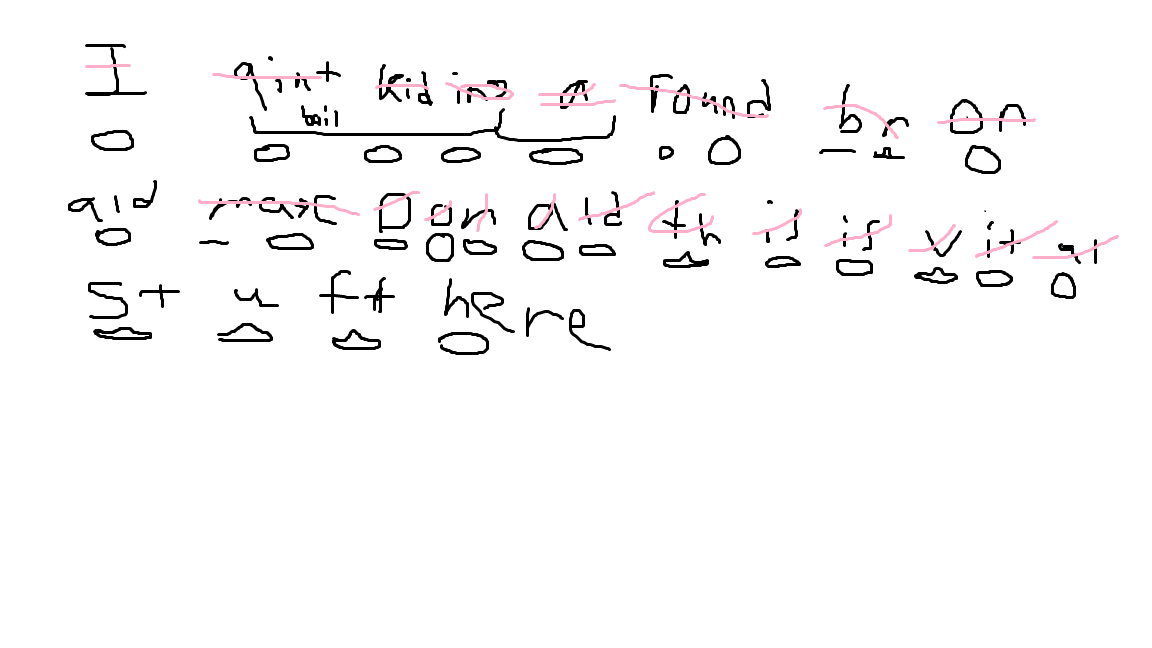 I aint kid ing a round br on
ald mac D on ald th is is v it al
St u ft here